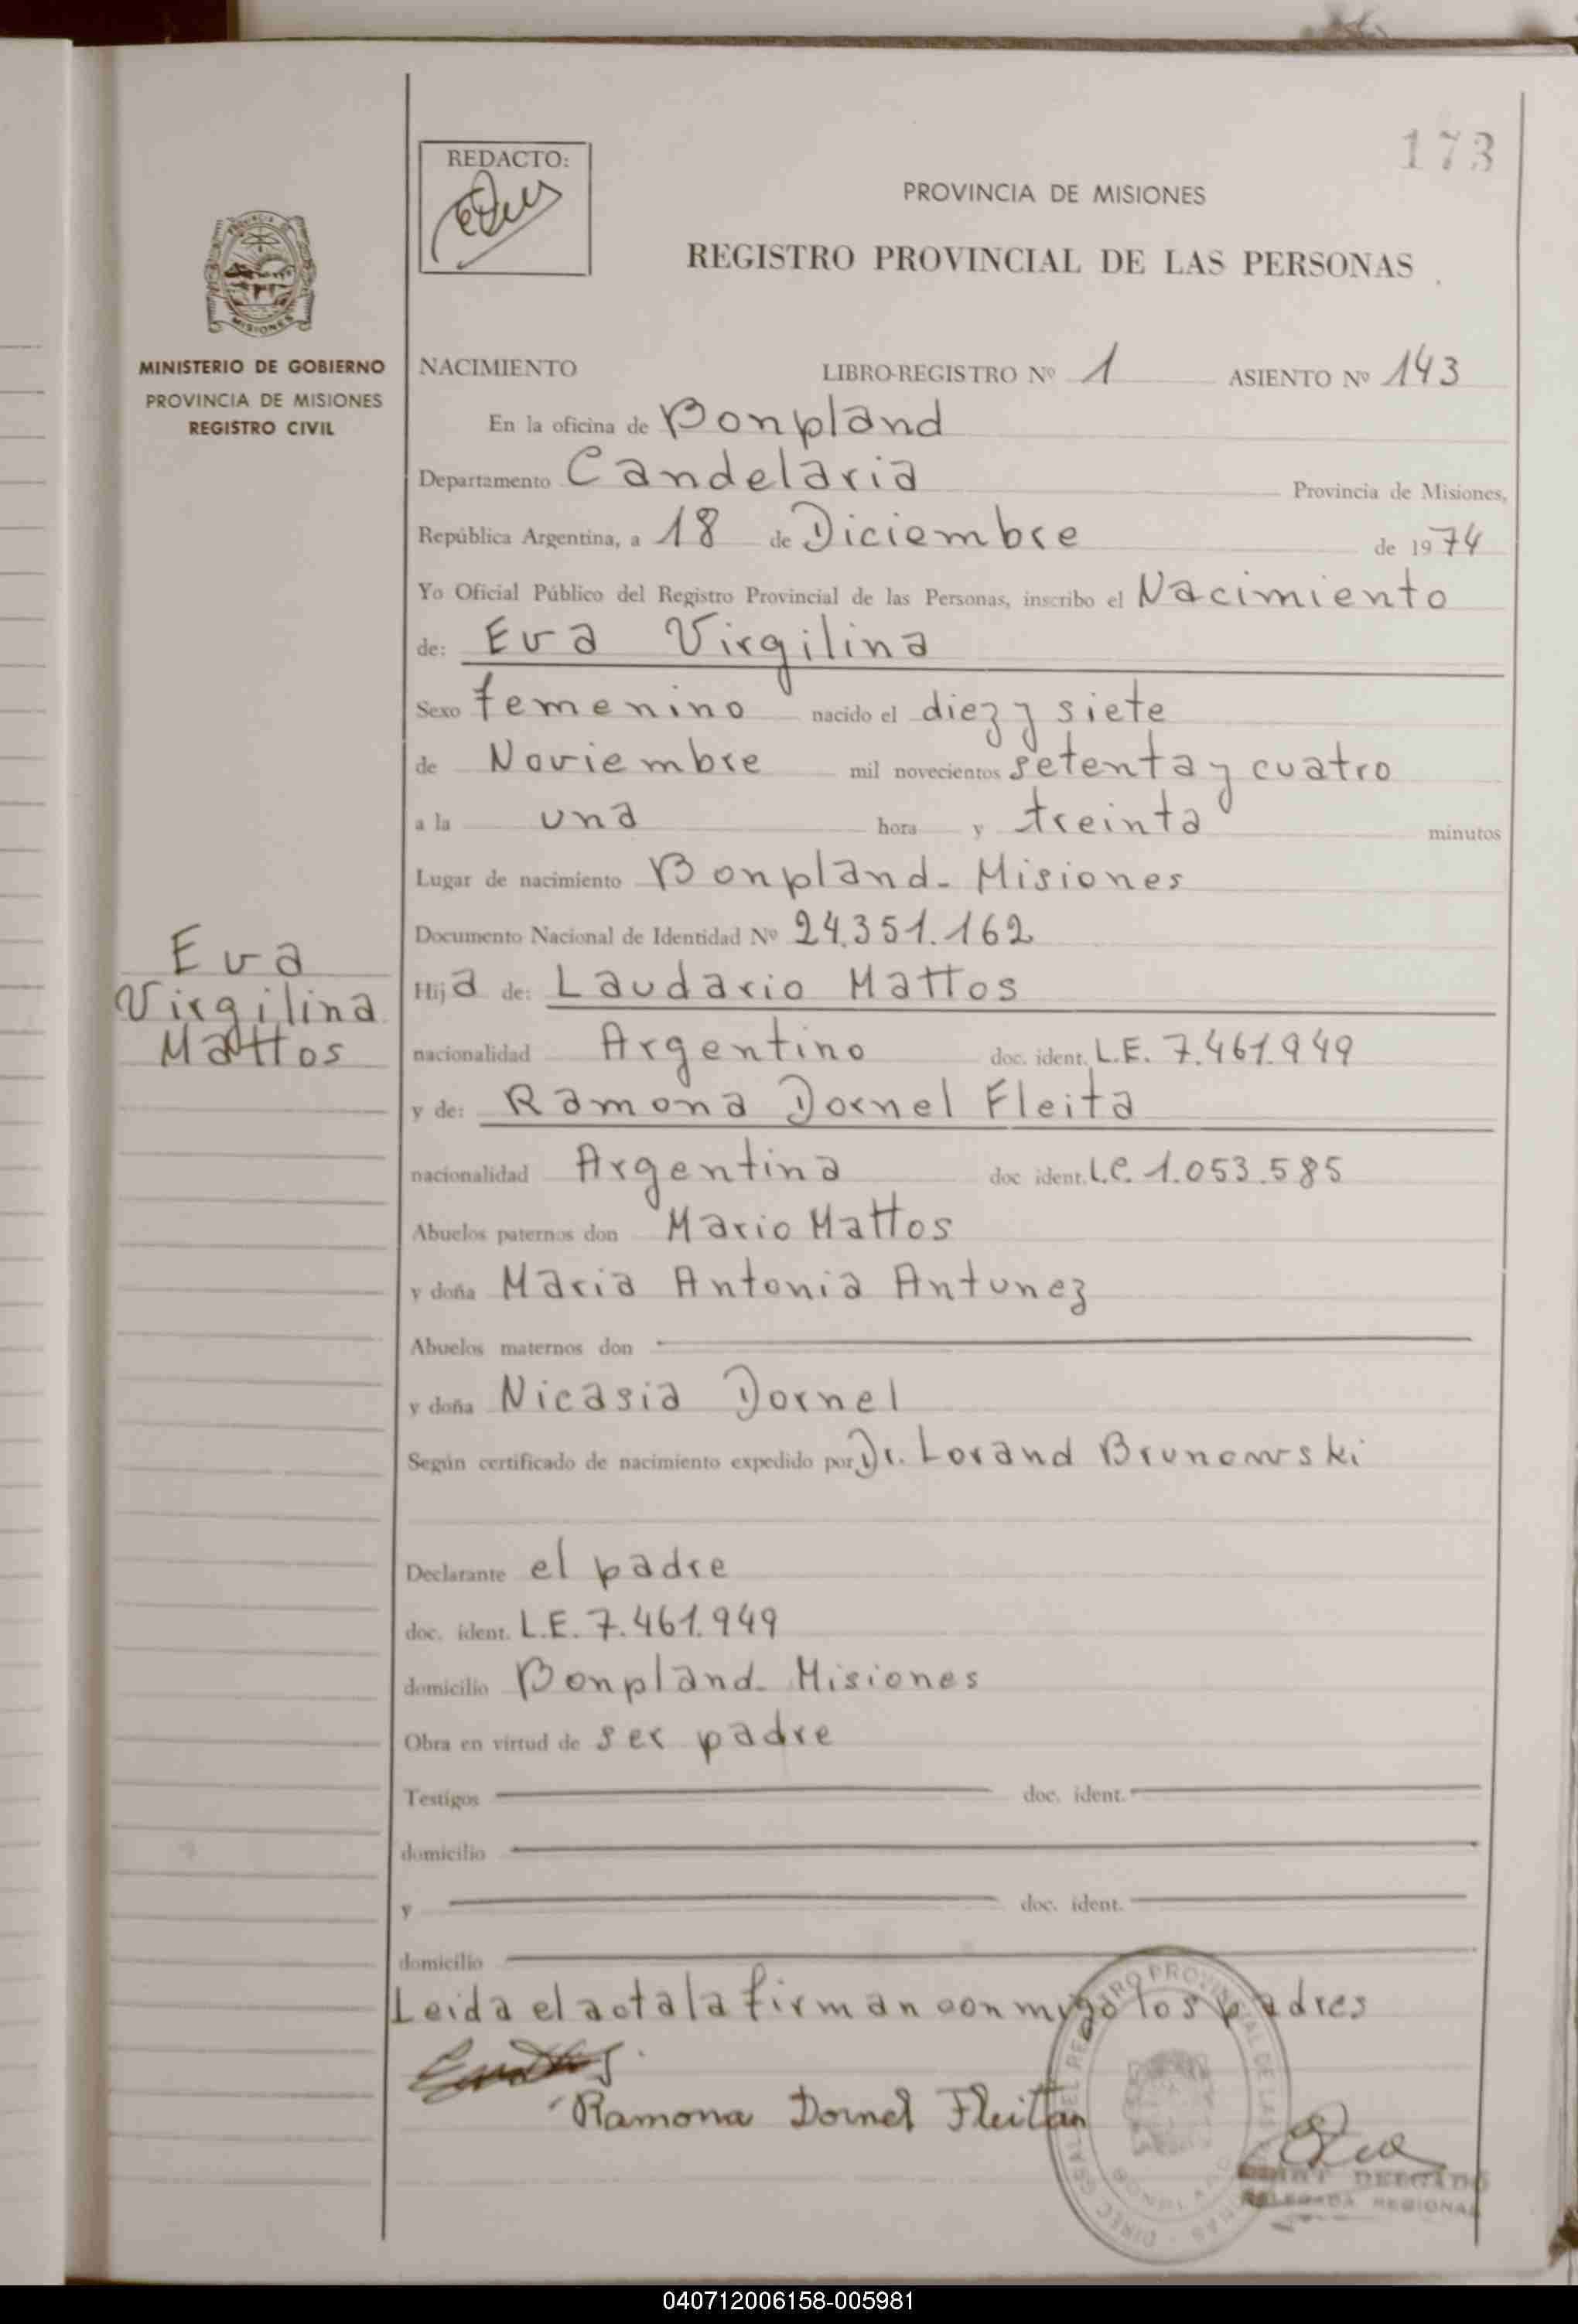 173
REDACTO:
PROVINCIA DE MISIONES
REGISTRO PROVINCIAL DE LAS PERSONAS
MISIONES
MINISTERIO DE GOBIERNO
PROVINCIA DE MISIONES
REGISTRO CIVIL
NACIMIENTO LIBRO-REGISTRO Nº 1 ASIENTO Nº 143
En la oficina de Bonpland
Departamento Candelaria Provincia de Misiones,
República Argentina, a 18 de Diciembre de 1974
Yo Oficial Público del Registro Provincial de las Personas, inscribo el Nacimiento
de: Eva Virgilina
Sexo femenino nacido el diez y siete
de Noviembre mil novecientos setenta y cuatro
a la una hora y treinta minutos
Lugar de nacimiento Bonpland - Misiones
Documento Nacional de Identidad Nº 24.351.162
Eva
Virgilina
Mattos
Hija de: Laudario Mattos
nacionalidad Argentino doc. ident. L.E. 7.461.949
y de: Ramona Dornel Fleita
nacionalidad Argentina doc ident. L.C. 1.053.585
Abuelos paternos don Mario Mattos
y doña Maria Antonia Antunez
Abuelos maternos don
y doña Nicasia Dornel
Según certificado de nacimiento expedido por Dr. Lorand Brunowski
Declarante el padre
doc. ident. L.E. 7.461.949
domicilio Bonpland - Misiones
Obra en virtud de ser padre
Testigos doc. ident.
domicilio
y doc. ident.
domicilio
Leida el acta la firman conmigo los padres
Ramona Dornel Fleitan
DELGADO
DELEGADA REGIONAL
040712006158-005981